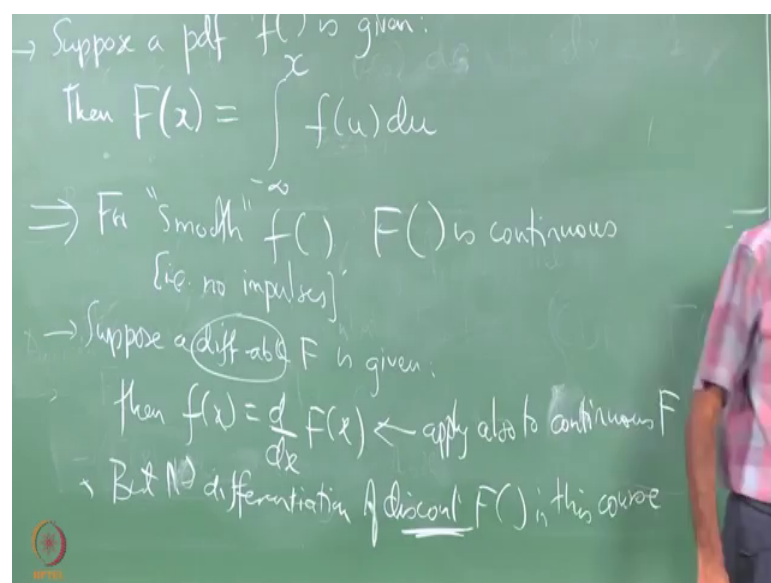 → Suppose a pdf f() is given:
Then F(x) = ∫_{-∞}^{x} f(u) du
⇒ For "smooth" f() F() is continuous
[i.e. no impulses]
→ Suppose a diff-able F is given:
then f(x) = d/dx F(x) ← apply also to continuous F
But No differentiation of discont F() in this course
NPTEL